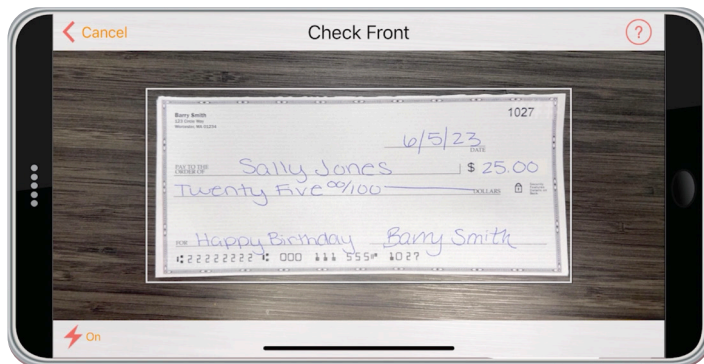 Cancel Check Front ?
Barry Smith
1027
6/5/23
DATE
PAY TO THE
ORDER OF Sally Jones $ 25.00
Twenty Five 00/100 DOLLARS
FOR Happy Birthday Barry Smith
⑆22222222⑆ 000 111 555⑈ 1027
On